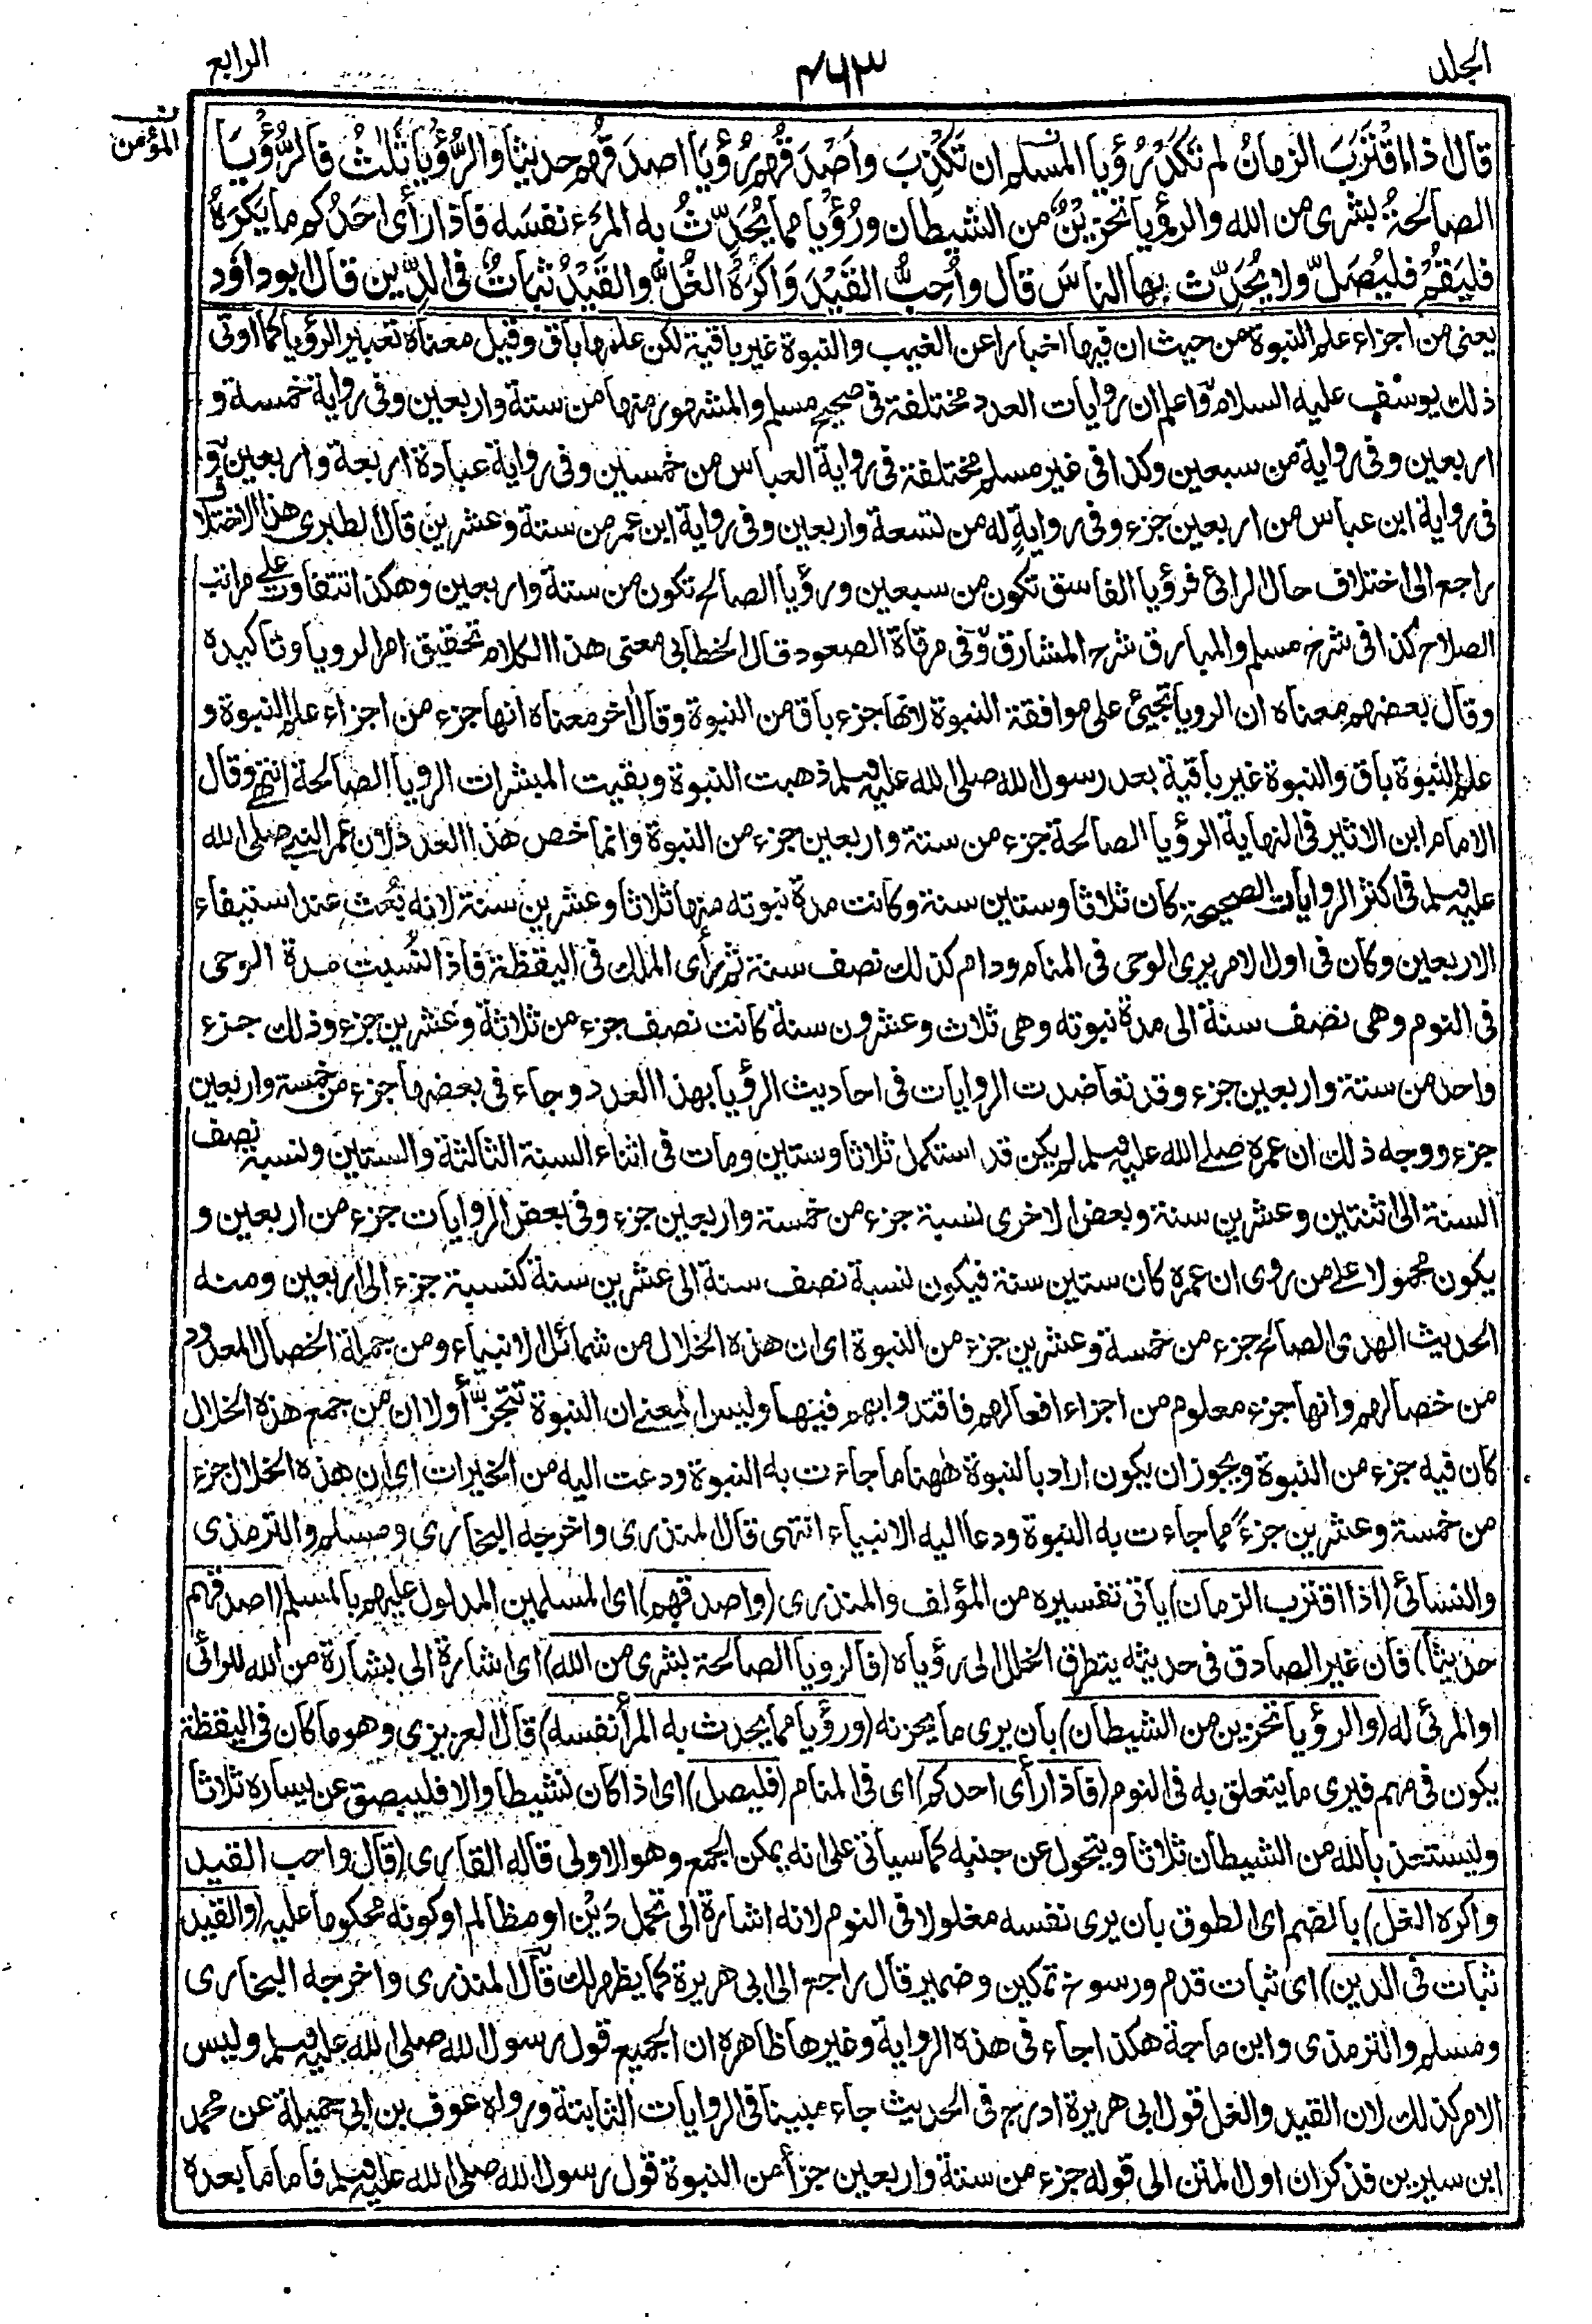 الجلد
٤٦٣
الرابع
المؤمن
قال اذا اقْتَرَبَ الزمانُ لم تَكَدْ رُؤيا المسلم ان تَكْذِبَ واَصْدَقُهم رُؤْيَا اصدَقُهم حديثا والرُّؤيا ثَلٰثٌ فالرُّؤْيَا
الصالحةُ بشرى من الله والرؤيا تَحْزِيْنٌ من الشيطان ورُؤْيا مما يُحَدِّثُ به المَرْء نفسَه فاذا رأى احَدُكم ما يَكْرَهُ
فليَقُمْ فليُصَلِّ ولا يُحَدِّث بها الناسَ قال واُحِبُّ القَيْدَ وَاكْرَهُ الغُلَّ والقَيْدُ ثَباتٌ فى الدِّين قال ابوداوَد
يعنى من اجزاء علم النبوة من حيث ان فيها اخبارا عن الغيب والنبوة غير باقية لكن علمها باق وقيل معناه تعبير الرؤيا كما اوتى
ذلك يوسف عليه السلام واعلم ان روايات العدد مختلفة فى صحيح مسلم والمشهور منها من ستة واربعين وفى رواية خمسة و
اربعين وفى رواية من سبعين وكذا فى غير مسلم مختلفة فى رواية العباس من خمسين وفى رواية عبادة اربعة واربعين و
فى رواية ابن عباس من اربعين جزء وفى رواية له من تسعة واربعين وفى رواية ابن عمر من ستة وعشرين قال الطبرى هذا الاختلاف
راجع الى اختلاف حال الرائى فرؤيا الفاسق تكون من سبعين ورؤيا الصالح تكون من ستة واربعين وهكذا تتفاوت على مراتب
الصلاح كذا فى شرح مسلم والمبارق شرح المشارق وفى مرقاة الصعود قال الخطابى معنى هذا الكلام تحقيق امر الرويا وتاكيده
وقال بعضهم معناه ان الرويا تجيئ على موافقة النبوة لانها جزء باق من النبوة وقال اخر معناه انها جزء من اجزاء علم النبوة و
علم النبوة باق والنبوة غير باقية بعد رسول الله صلى الله عليه وسلم ذهبت النبوة وبقيت المبشرات الرويا الصالحة انتهى وقال
الامام ابن الاثير فى النهاية الرؤيا الصالحة جزء من ستة واربعين جزء من النبوة وانما خص هذا العدد لان عمر النبى صلى الله
عليه وسلم فى اكثر الروايات الصحيحة كان ثلاثا وستين سنة وكانت مدة نبوته منها ثلاثا وعشرين سنة لانه بُعث عند استيفاء
الاربعين وكان فى اول الامر يرى الوحى فى المنام ودام كذلك نصف سنة ثم رأى الملك فى اليقظة فاذا نُسبت مدة الوحى
فى النوم وهى نصف سنة الى مدة نبوته وهى ثلاث وعشرون سنة كانت نصف جزء من ثلاثة وعشرين جزء وذلك جزء
واحد من ستة واربعين جزء وقد تعاضدت الروايات فى احاديث الرؤيا بهذا العدد وجاء فى بعضها جزء من خمسة واربعين
جزء ووجه ذلك ان عمره صلى الله عليه وسلم لم يكن قد استكمل ثلاثا وستين ومات فى اثناء السنة الثالثة والستين ونسبة نصف
السنة الى اثنتين وعشرين سنة وبعض الاخرى نسبة جزء من خمسة واربعين جزء وفى بعض الروايات جزء من اربعين و
يكون محمولا على من روى ان عمره كان ستين سنة فيكون نسبة نصف سنة الى عشرين سنة كنسبة جزء الى اربعين ومنه
الحديث الهدى الصالح جزء من خمسة وعشرين جزء من النبوة اى ان هذه الخلال من شمائل الانبياء ومن جملة الخصال المعدودة
من خصالهم وانها جزء معلوم من اجزاء افعالهم فاقتدوا بهم فيها وليس المعنى ان النبوة تتجزأ ولا ان من جمع هذه الخلال
كان فيه جزء من النبوة ويجوز ان يكون اراد بالنبوة ههنا ما جاءت به النبوة ودعت اليه من الخيرات اى ان هذه الخلال جزء
من خمسة وعشرين جزءً مما جاءت به النبوة ودعا اليه الانبياء انتهى قال المنذرى واخرجه البخارى ومسلم والترمذى
والنسائى (اذا اقترب الزمان) ياتى تفسيره من المؤلف والمنذرى (واصدقهم) اى المسلمين المدلول عليهم بالمسلم (اصدقهم
حديثا) فان غير الصادق فى حديثه يتطرق الخلل الى رؤياه (فالرويا الصالحة بشرى من الله) اى اشارة الى بشارة من الله للرائى
او المرئى له (والرؤيا تحزين من الشيطان) بان يرى ما يحزنه (ورؤيا مما يحدث به المرأ نفسه) قال العزيزى وهو ما كان فى اليقظة
يكون فى مهم فيرى ما يتعلق به فى النوم (فاذا رأى احدكم) اى فى المنام (فليصل) اى اذا كان نشيطا والا فليبصق عن يساره ثلاثا
وليستعذ بالله من الشيطان ثلاثا ويتحول عن جنبه كما سياتى على انه يمكن الجمع وهو الاولى قاله القارى (قال واحب القيد
واكره الغل) بالضم اى الطوق بان يرى نفسه مغلولا فى النوم لانه اشارة الى تحمل دَيْن او مظالم او كونه محكوما عليه (والقيد
ثبات فى الدين) اى ثبات قدم ورسوخ تمكين وضمير قال راجع الى ابى هريرة كما يظهر لك قال المنذرى واخرجه البخارى
ومسلم والترمذى وابن ماجة هكذا جاء فى هذه الرواية وغيرها ظاهره ان الجميع قول رسول الله صلى الله عليه وسلم وليس
الامر كذلك لان القيد والغل قول ابى هريرة ادرج فى الحديث جاء مبينا فى الروايات الثابتة ورواه عوف بن ابى جميلة عن محمد
ابن سيرين فذكر ان اول المتن الى قوله جزء من ستة واربعين جزأ من النبوة قول رسول الله صلى الله عليه وسلم فاما ما بعده